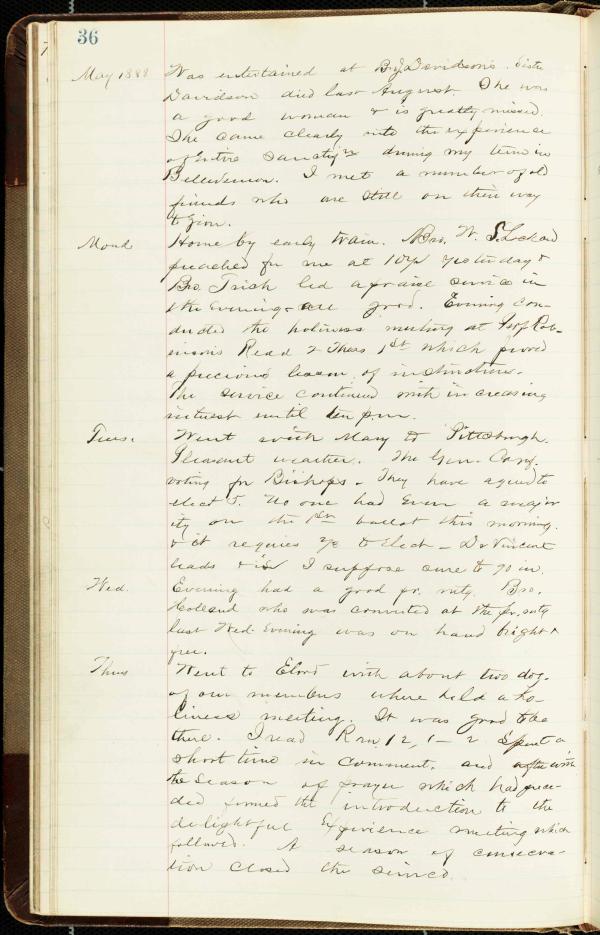 36
May 1888 Was entertained at Bro J. Davidson's. Sister
Davidson died last August. She was
a good woman & is greatly missed.
She came clearly into the experience
of entire sanctif'n during my term in
Bellevernon. I met a number of old
friends who are still on their way
to Zion.
Mond Home by early train. Bro. W. S. Lockard
preached for me at 10½ yesterday &
Bro. Trish led a praise service in
the evening & all good. Evening con-
ducted the holiness meeting at Prof Rob-
inson's Read 2 Thess 1st which proved
a precious lesson of instruction.
The service continued with increasing
interest until ten p.m.
Tues. Went with Mary to Pittsburgh.
Pleasant weather. The Gen. Conf.
voting for Bishops - They have agreed to
elect 5. No one had even a major
ity on the 1st ballot this morning.
& it requires ⅔ to elect - Dr Vincent
leads & is I suppose sure to go in.
Wed. Evening had a good pr. mtg. Bro.
who was converted at the pr. mtg
last Wed. Evening was on hand bright &
free.
Thus Went to Elrod with about two doz.
of our members where held a ho-
liness meeting. It was good to be
there. I read Rom 12, 1-2 Spent a
short time in comment, and after with
the season of prayer which had prece-
ded formed the introduction to the
delightful Experience meeting which
followed. A season of consecra-
tion closed the service.